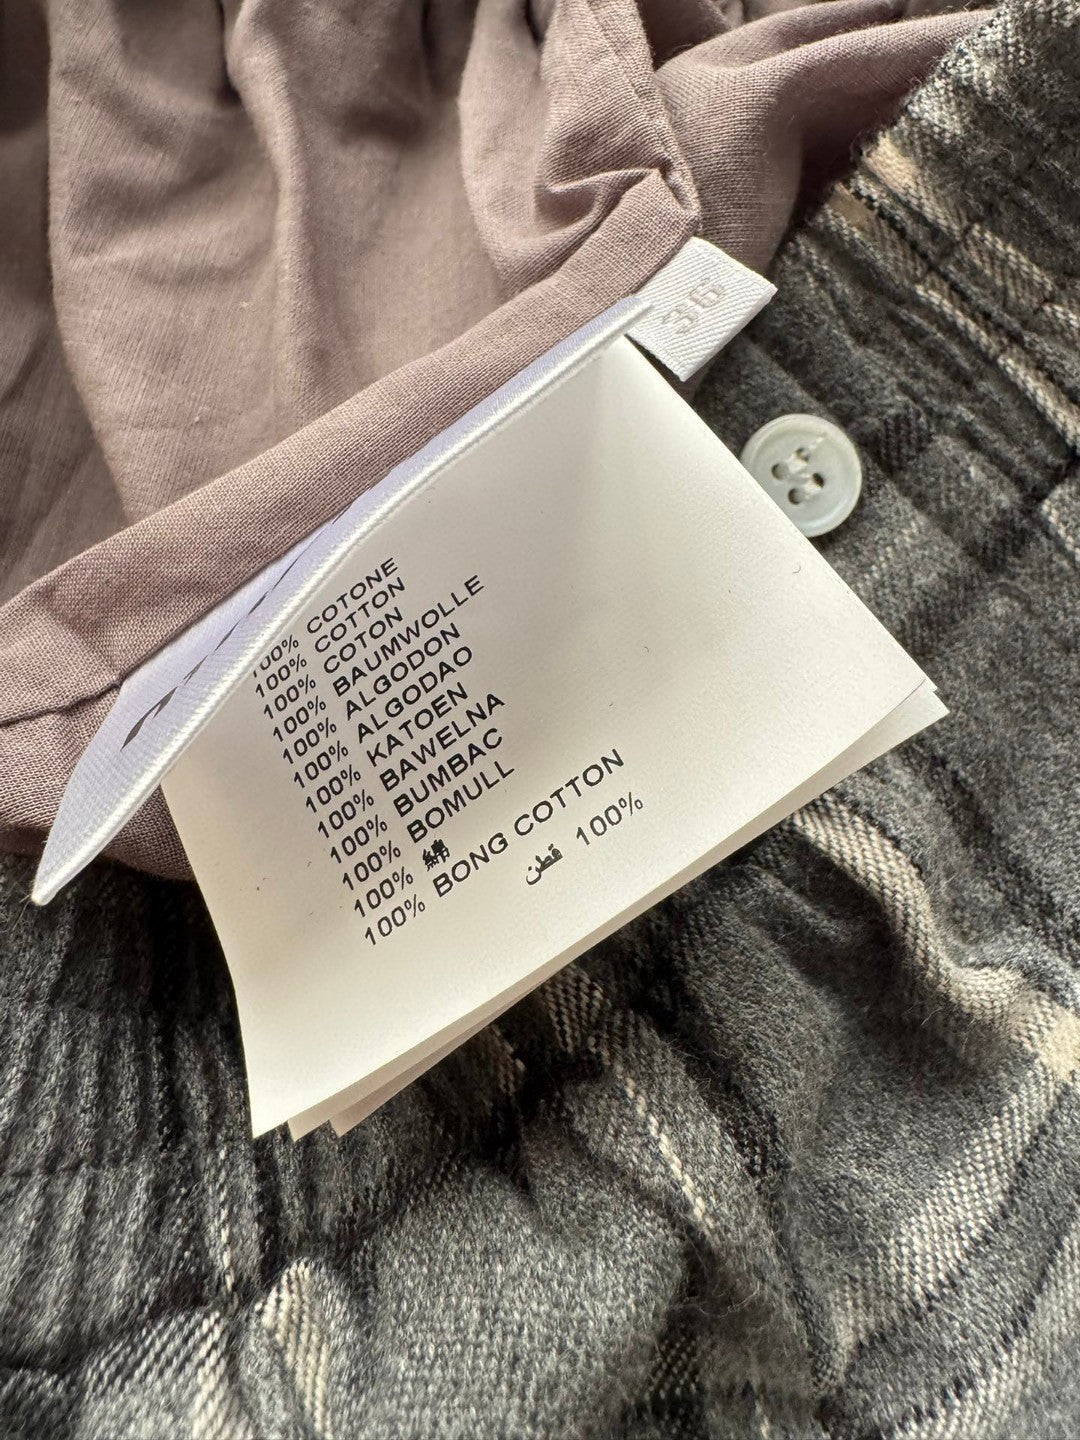 36
100% COTONE
100% COTTON
100% COTON
100% BAUMWOLLE
100% ALGODON
100% ALGODAO
100% KATOEN
100% BAWELNA
100% BUMBAC
100% BOMULL
100% 綿
100% BONG COTTON
100% قطن